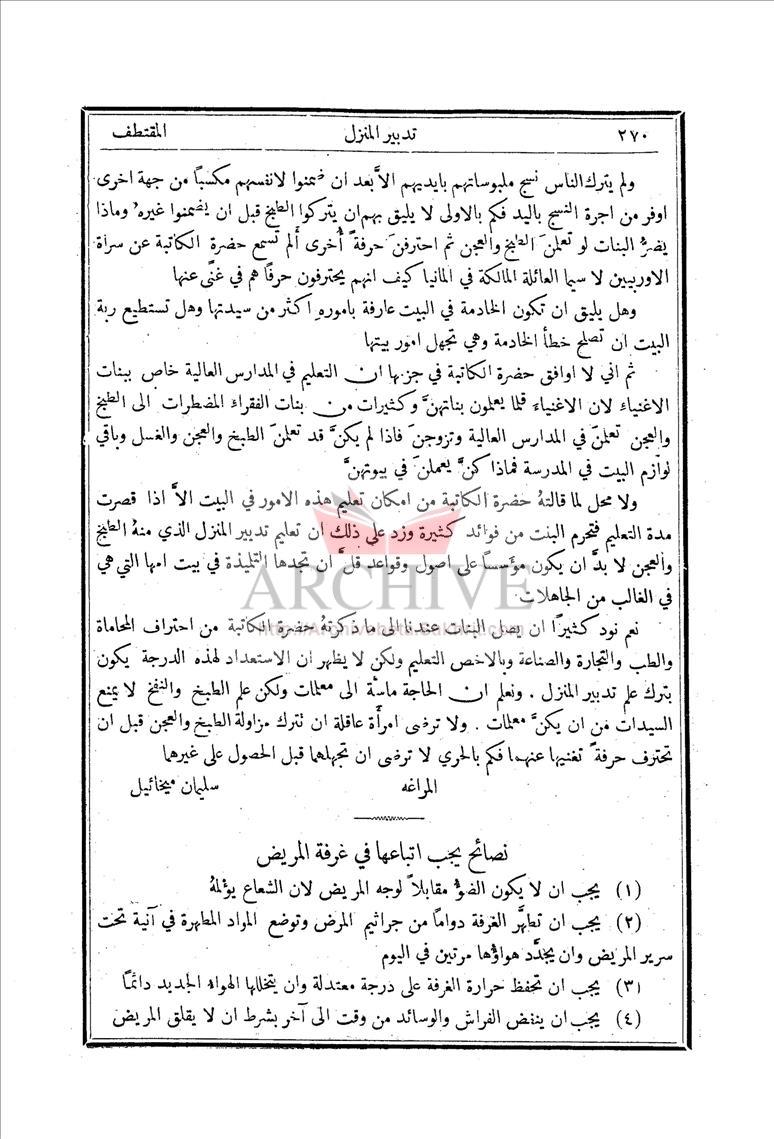 ٢٧٠ تدبير المنزل المقتطف
ولم يترك الناس نسج ملبوساتهم بايديهم الاَّ بعد ان ضمنوا لانفسهم مكسباً من جهة اخرى
اوفر من اجرة النسج باليد فكم بالاولى لا يليق بهم ان يتركوا الطبخ قبل ان يضمنوا غيره وماذا
يضرُّ البنات لو تعلمنَ الطبخ والعجن ثم احترفنَ حرفةً أُخرى ألم تسمع حضرة الكاتبة عن سراة
الاوربيين لا سيما العائلة المالكة في المانيا كيف انهم يحترفون حرفًا هم في غنًى عنها
وهل يليق ان تكون الخادمة في البيت عارفة باموره اكثر من سيدتها وهل تستطيع ربة
البيت ان تصلح خطأ الخادمة وهي تجهل امور بيتها
ثم اني لا اوافق حضرة الكاتبة في جزمها ان التعليم في المدارس العالية خاص ببنات
الاغنياء لان الاغنياء قلما يعلمون بناتهنَّ وكثيرات من بنات الفقراء المضطرات الى الطبخ
والعجن تعلمنَ في المدارس العالية وتزوجنَ فاذا لم يكنَّ قد تعلمنَ الطبخ والعجن والغسل وباقي
لوازم البيت في المدرسة فماذا كنَّ يعملنَ في بيوتهنَّ
ولا محل لما قالتهُ حضرة الكاتبة من امكان تعليم هذه الامور في البيت الاَّ اذا قصرت
مدة التعليم فتحرم البنت من فوائد كثيرة وزد على ذلك ان تعليم تدبير المنزل الذي منهُ الطبخ
والعجن لا بدَّ ان يكون مؤَسساً على اصول وقواعد قلَّ ان تجدها التلميذة في بيت امها التي هي
في الغالب من الجاهلات
ARCHIVE
نعم نود كثيرًا ان يصل البنات عندنا الى ما ذكرتهُ حضرة الكاتبة من احتراف المحاماة
والطب والتجارة والصناعة وبالاخص التعليم ولكن لا يظهر ان الاستعداد لهذه الدرجة يكون
بترك علم تدبير المنزل . ونعلم ان الحاجة ماسَّة الى معلمات ولكن علم الطبخ والنفخ لا يمنع
السيدات من ان يكنَّ معلمات . ولا ترضى امرأَة عاقلة ان تترك مزاولة الطبخ والعجن قبل ان
تحترف حرفةً تغنيها عنهما فكم بالحري لا ترضى ان تجهلهما قبل الحصول على غيرهما
المراغه سليمان ميخائيل
نصائح يجب اتباعها في غرفة المريض
(١) يجب ان لا يكون الضوُّ مقابلاً لوجه المريض لان الشعاع يؤلمهُ
(٢) يجب ان تطهَّر الغرفة دواماً من جراثيم المرض وتوضع المواد المطهرة في آنية تحت
سرير المريض وان يجدَّد هواؤُها مرتين في اليوم
(٣) يجب ان تحفظ حرارة الغرفة على درجة معتدلة وان يتخللها الهواء الجديد دائماً
(٤) يجب ان ينفض الفراش والوسائد من وقت الى آخر بشرط ان لا يقلق المريض